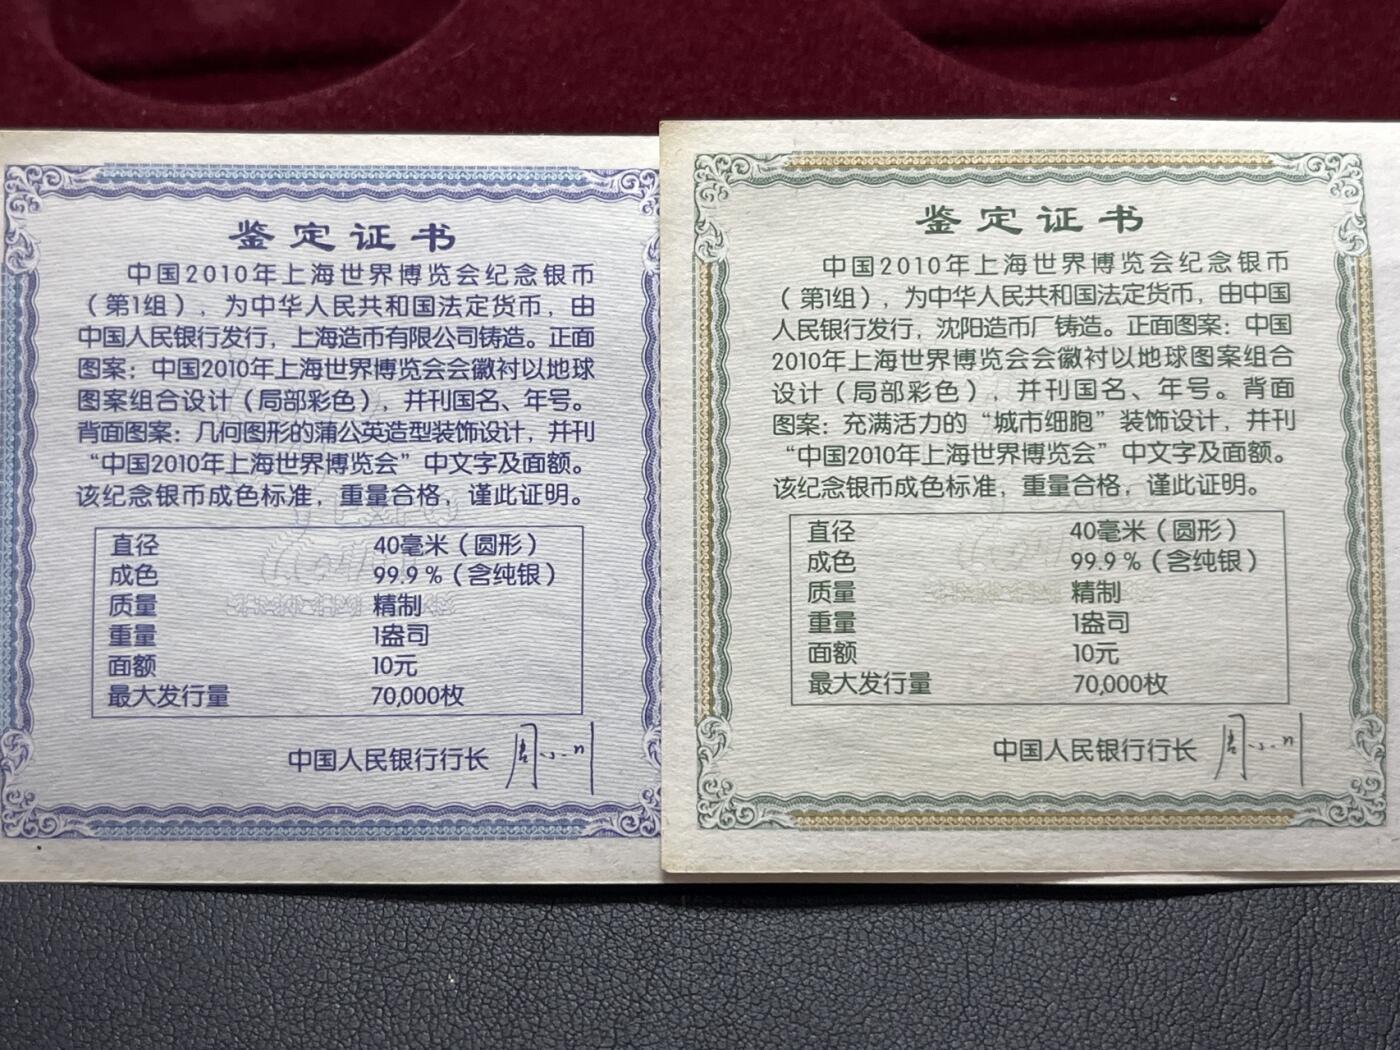 鉴定证书
中国2010年上海世界博览会纪念银币
（第1组），为中华人民共和国法定货币，由
中国人民银行发行，上海造币有限公司铸造。正面
图案：中国2010年上海世界博览会会徽衬以地球
图案组合设计（局部彩色），并刊国名、年号。
背面图案：几何图形的蒲公英造型装饰设计，并刊
“中国2010年上海世界博览会”中文字及面额。
该纪念银币成色标准，重量合格，谨此证明。
直径 40毫米（圆形）
成色 99.9％（含纯银）
质量 精制
重量 1盎司
面额 10元
最大发行量 70,000枚
中国人民银行行长 周小川
鉴定证书
中国2010年上海世界博览会纪念银币
（第1组），为中华人民共和国法定货币，由中国
人民银行发行，沈阳造币厂铸造。正面图案：中国
2010年上海世界博览会会徽衬以地球图案组合
设计（局部彩色），并刊国名、年号。背面
图案：充满活力的“城市细胞”装饰设计，并刊
“中国2010年上海世界博览会”中文字及面额。
该纪念银币成色标准，重量合格，谨此证明。
直径 40毫米（圆形）
成色 99.9％（含纯银）
质量 精制
重量 1盎司
面额 10元
最大发行量 70,000枚
中国人民银行行长 周小川